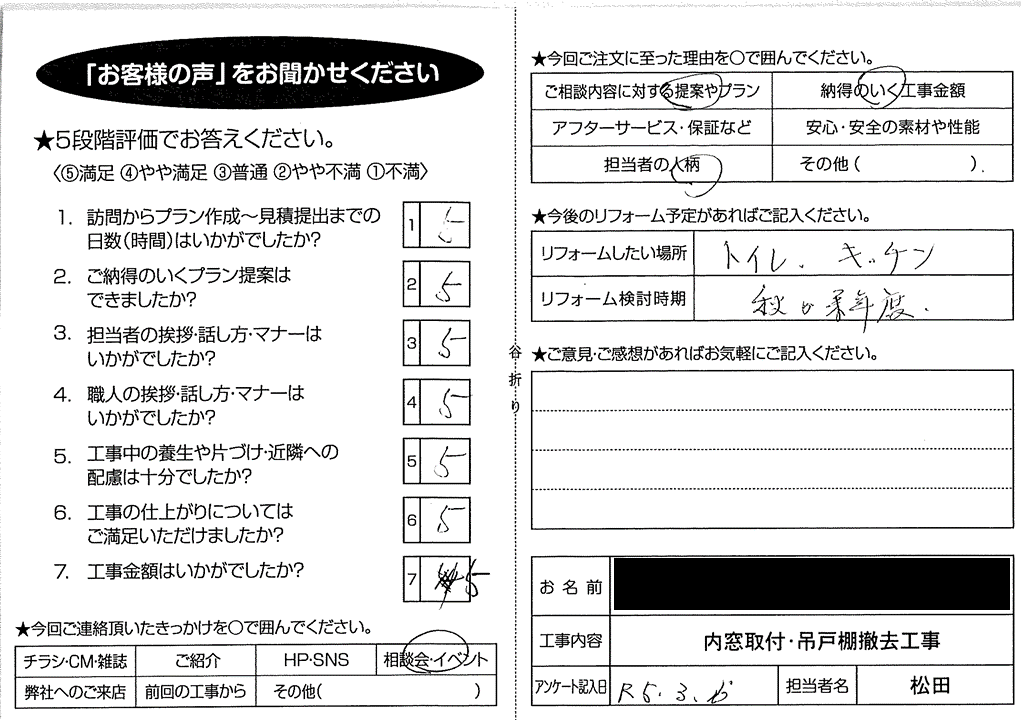 「お客様の声」をお聞かせください
★5段階評価でお答えください。
〈⑤満足 ④やや満足 ③普通 ②やや不満 ①不満〉
1. 訪問からプラン作成~見積提出までの
日数(時間)はいかがでしたか?
1 5
2. ご納得のいくプラン提案は
できましたか?
2 5
3. 担当者の挨拶・話し方・マナーは
いかがでしたか?
3 5
4. 職人の挨拶・話し方・マナーは
いかがでしたか?
4 5
5. 工事中の養生や片づけ・近隣への
配慮は十分でしたか?
5 5
6. 工事の仕上がりについては
ご満足いただけましたか?
6 5
7. 工事金額はいかがでしたか?
7 5
★今回ご連絡頂いたきっかけを○で囲んでください。
チラシ・CM・雑誌 ご紹介 HP・SNS 相談会・イベント
弊社へのご来店 前回の工事から その他( )
谷折り
★今回ご注文に至った理由を○で囲んでください。
ご相談内容に対する提案やプラン 納得のいく工事金額
アフターサービス・保証など 安心・安全の素材や性能
担当者の人柄 その他( ).
★今後のリフォーム予定があればご記入ください。
リフォームしたい場所 トイレ、キッチン
リフォーム検討時期 秋か来年度.
★ご意見・ご感想があればお気軽にご記入ください。
お名前
工事内容 内窓取付・吊戸棚撤去工事
アンケート記入日 R5.3. 担当者名 松田